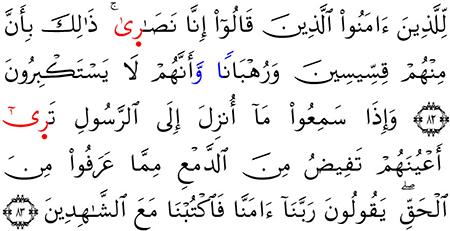 لِّلَّذِينَ ءَامَنُوا۟ ٱلَّذِينَ قَالُوٓا۟ إِنَّا نَصَـٰرِىٰ ۚ ذَٰلِكَ بِأَنَّ
مِنْهُمْ قِسِّيسِينَ وَرُهْبَانًا وَّأَنَّهُمْ لَا يَسْتَكْبِرُونَ
﴿٨٢﴾ وَإِذَا سَمِعُوا۟ مَآ أُنزِلَ إِلَى ٱلرَّسُولِ تَرِىٰٓ
أَعْيُنَهُمْ تَفِيضُ مِنَ ٱلدَّمْعِ مِمَّا عَرَفُوا۟ مِنَ
ٱلْحَقِّ ۖ يَقُولُونَ رَبَّنَآ ءَامَنَّا فَٱكْتُبْنَا مَعَ ٱلشَّـٰهِدِينَ ﴿٨٣﴾